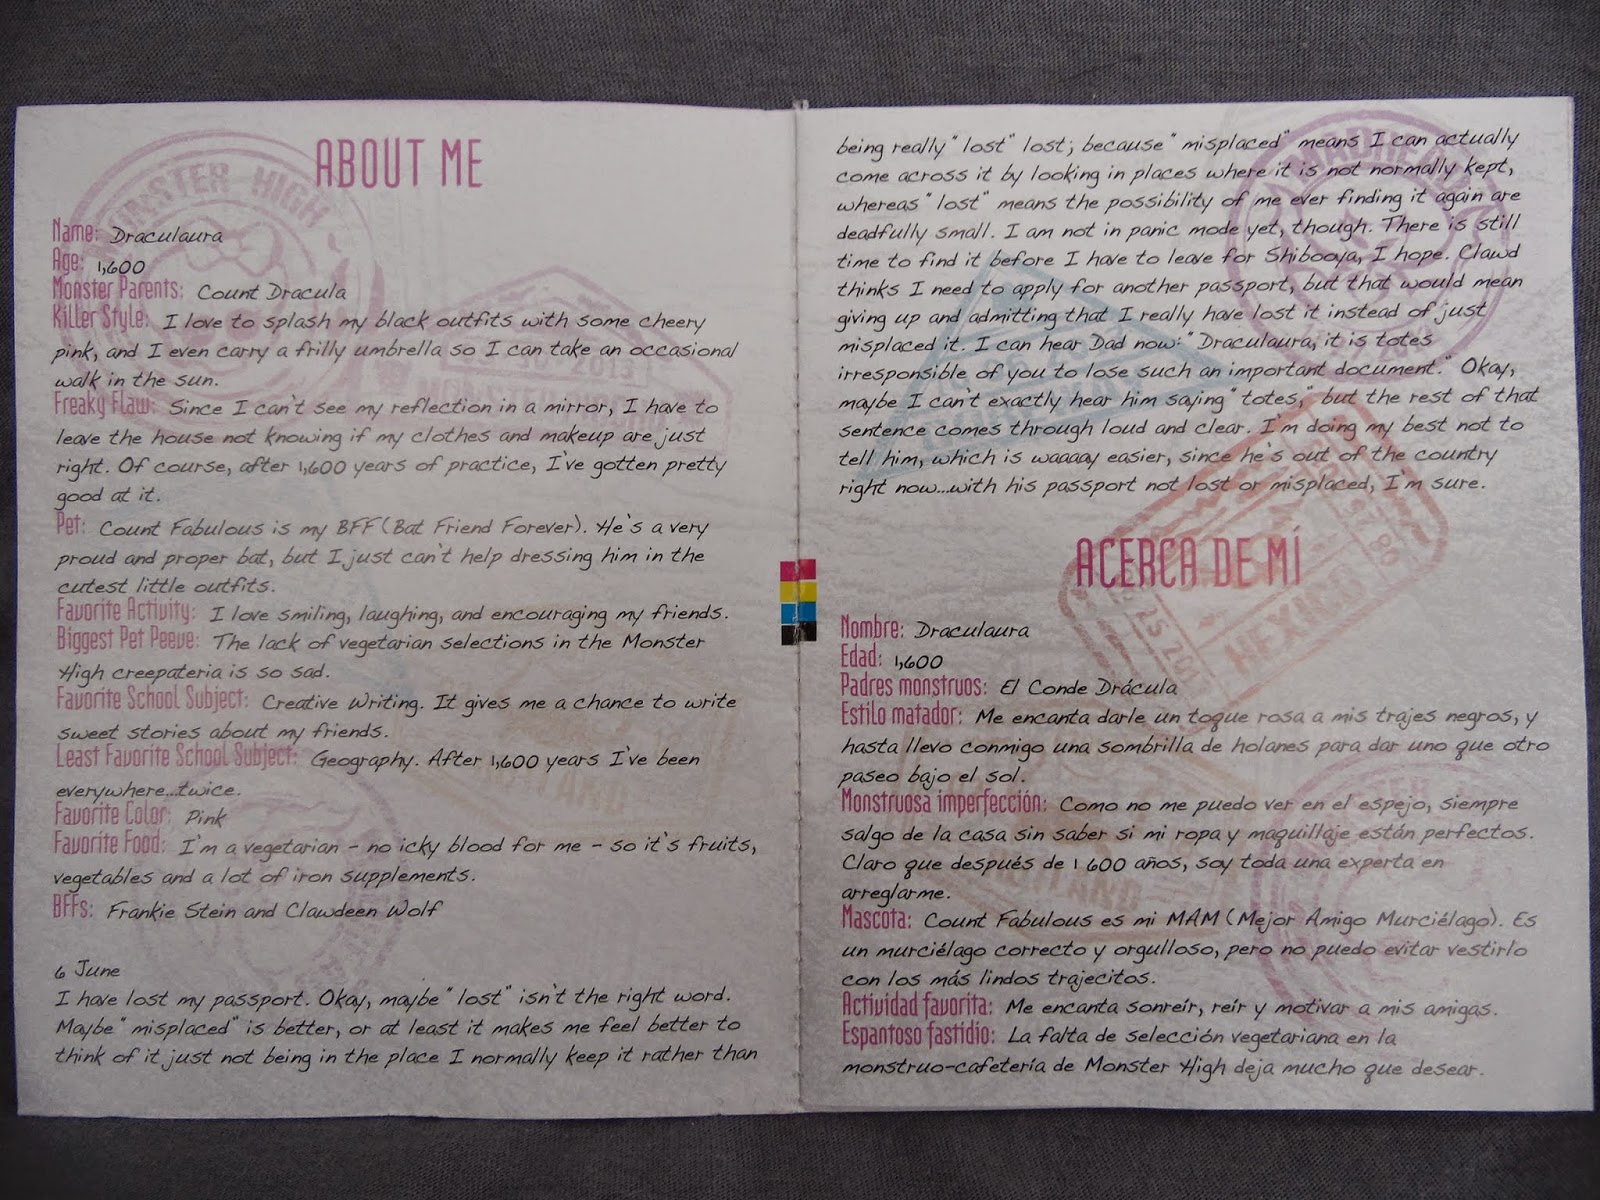 ABOUT ME
Name: Draculaura
Age: 1,600
Monster Parents: Count Dracula
Killer Style: I love to splash my black outfits with some cheery
pink, and I even carry a frilly umbrella so I can take an occasional
walk in the sun.
Freaky Flaw: Since I can't see my reflection in a mirror, I have to
leave the house not knowing if my clothes and makeup are just
right. Of course, after 1,600 years of practice, I've gotten pretty
good at it.
Pet: Count Fabulous is my BFF (Bat Friend Forever). He's a very
proud and proper bat, but I just can't help dressing him in the
cutest little outfits.
Favorite Activity: I love smiling, laughing, and encouraging my friends.
Biggest Pet Peeve: The lack of vegetarian selections in the Monster
High creepateria is so sad.
Favorite School Subject: Creative Writing. It gives me a chance to write
sweet stories about my friends.
Least Favorite School Subject: Geography. After 1,600 years I've been
everywhere...twice.
Favorite Color: Pink
Favorite Food: I'm a vegetarian - no icky blood for me - so it's fruits,
vegetables and a lot of iron supplements.
BFFs: Frankie Stein and Clawdeen Wolf
6 June
I have lost my passport. Okay, maybe "lost" isn't the right word.
Maybe "misplaced" is better, or at least it makes me feel better to
think of it just not being in the place I normally keep it rather than
being really "lost" lost; because "misplaced" means I can actually
come across it by looking in places where it is not normally kept,
whereas "lost" means the possibility of me ever finding it again are
deadfully small. I am not in panic mode yet, though. There is still
time to find it before I have to leave for Shibooya, I hope. Clawd
thinks I need to apply for another passport, but that would mean
giving up and admitting that I really have lost it instead of just
misplaced it. I can hear Dad now: "Draculaura, it is totes
irresponsible of you to lose such an important document." Okay,
maybe I can't exactly hear him saying "totes," but the rest of that
sentence comes through loud and clear. I'm doing my best not to
tell him, which is waaaay easier, since he's out of the country
right now...with his passport not lost or misplaced, I'm sure.
ACERCA DE MÍ
Nombre: Draculaura
Edad: 1,600
Padres monstruos: El Conde Drácula
Estilo matador: Me encanta darle un toque rosa a mis trajes negros, y
hasta llevo conmigo una sombrilla de holanes para dar uno que otro
paseo bajo el sol.
Monstruosa imperfección: Como no me puedo ver en el espejo, siempre
salgo de la casa sin saber si mi ropa y maquillaje están perfectos.
Claro que después de 1 600 años, soy toda una experta en
arreglarme.
Mascota: Count Fabulous es mi MAM (Mejor Amigo Murciélago). Es
un murciélago correcto y orgulloso, pero no puedo evitar vestirlo
con los más lindos trajecitos.
Actividad favorita: Me encanta sonreír, reír y motivar a mis amigas.
Espantoso fastidio: La falta de selección vegetariana en la
monstruo-cafetería de Monster High deja mucho que desear.